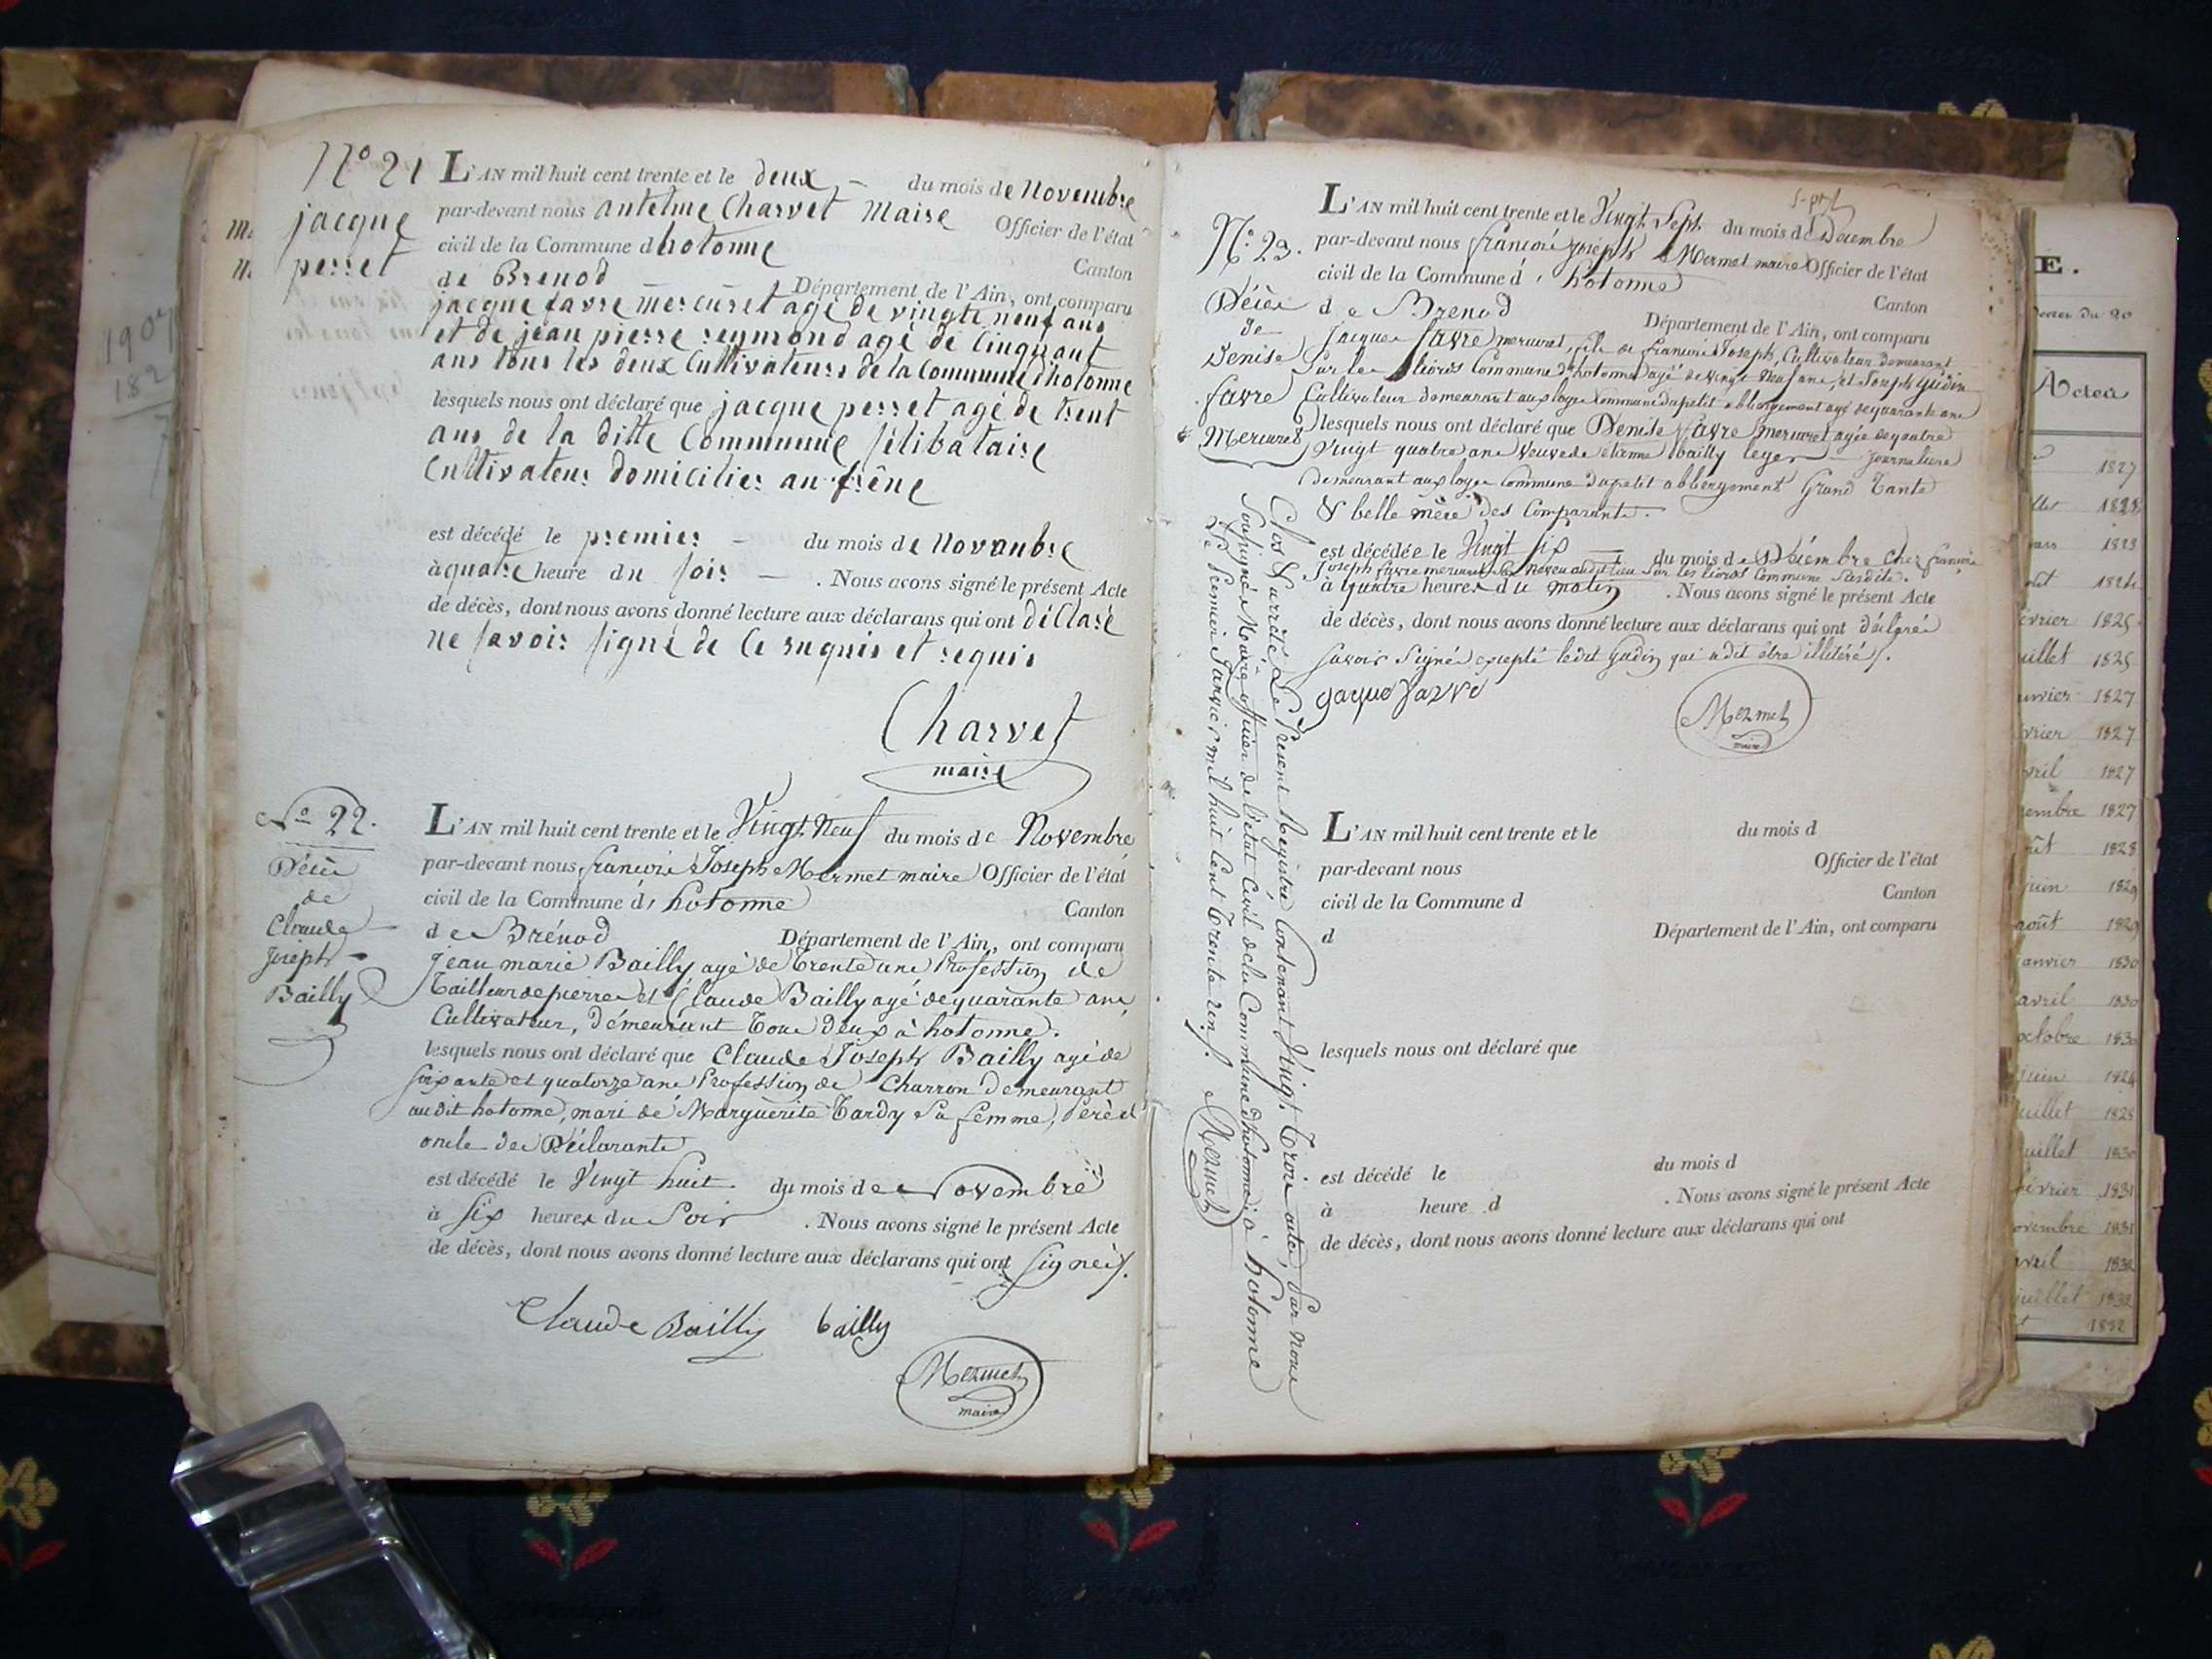 N.º 21
jacque
perret
L'AN mil huit cent trente et le deux du mois de Novembre
par-devant nous antelme Charvet Maire Officier de l'état
civil de la Commune d hotonne Canton
de Brenod Département de l'Ain, ont comparu
jacque favre mercuret agé de vingte neuf ans
et de jean pierre reymond agé de Cinquant
ans tous les deux Cultivateurs de la Commune d'hotonne
lesquels nous ont déclaré que jacque perret agé de trent
ans de la ditte Commune Célibataire
Cultivateur domicilier au frêne
est décédé le premier du mois de Novanbre
à quatre heure du Soir . Nous avons signé le présent Acte
de décès, dont nous avons donné lecture aux déclarans qui ont déClaré
ne Savoir Signé de Ce enquis et requis
Charvet
maire
N.º 22.
Décès
de
Claude
Joseph
Bailly
L'AN mil huit cent trente et le Vingt Neuf du mois de Novembre
par-devant nous francois Joseph Mermet maire Officier de l'état
civil de la Commune d'hotonne Canton
de Brénod Département de l'Ain, ont comparu
jean marie Bailly agé de Trente ans Profession de
Tailleur de pierres et Claude Bailly agé de quarante ans
Cultivateur, démeurant Tous deux à hotonne.
lesquels nous ont déclaré que Claude Joseph Bailly agé de
soixante et quatorze ans Profession de Charron demeurant
au dit hotonne, mari de Marguerite Tardy Sa femme, Père et
oncle des Déclarants
est décédé le Vingt huit du mois de Novembre
à Six heures du Soir . Nous avons signé le présent Acte
de décès, dont nous avons donné lecture aux déclarans qui ont Signés/.
Claude Bailly bailly
Mermet
maire
N.º 23.
Décès
de
Denise
favre
Mercuret
L'AN mil huit cent trente et le Vingt Sept du mois de Décembre
par-devant nous francois joseph Mermet maire Officier de l'état
civil de la Commune d'hotonne Canton
de Brenod Département de l'Ain, ont comparu
Jacques favre mercuret, fils de francois Joseph, Cultivateur demeurant
Sur les lioros Commune d'hotonne agé de vingt Neuf ans, et Joseph Gudin
Cultivateur demeurant aux loges Commune du petit abbergement agé de quarante ans
lesquels nous ont déclaré que Denise favre mercuret agée de quatre
Vingt quatre ans Veuve de etienne bailly leger Journaliere
demeurant aux loges Commune du petit abbergement Grand Tante
& belle mère des Comparants.
est décédée le Vingt Six du mois de Décembre Chez francois
Joseph favre mercuret Son neveu audit lieu Sur les lioros Commune Susdite.
à quatre heures du matin . Nous avons signé le présent Acte
de décès, dont nous avons donné lecture aux déclarans qui ont déclaré
savoir Signer excepté ledit Gudin qui a dit être illitéré/.
jaque favre
Mermet
maire
Clos & arrêté Le Présent Registre Contenant Vingt Trois actes, Par Nous
Soussigné Maire officier de l'état Civil de la Commune d'hotonne à hotonne
Le Premier Janvier mil huit Cent Trente un/. Mermet
L'AN mil huit cent trente et le du mois d
par-devant nous Officier de l'état
civil de la Commune d Canton
d Département de l'Ain, ont comparu
lesquels nous ont déclaré que
est décédé le du mois d
à heure d . Nous avons signé le présent Acte
de décès, dont nous avons donné lecture aux déclarans qui ont
190
182
E.
Actes
1827
1828
1823
1824
évrier 1825
uillet 1825
anvier 1827
vrier 1827
vril 1827
embre 1827
oût 1828
juin 1829
août 1829
anvier 1830
avril 1830
octobre 1830
juin 1824
uillet 1825
uillet 1830
évrier 1831
ovembre 1831
avril 1832
juillet 1832
1832